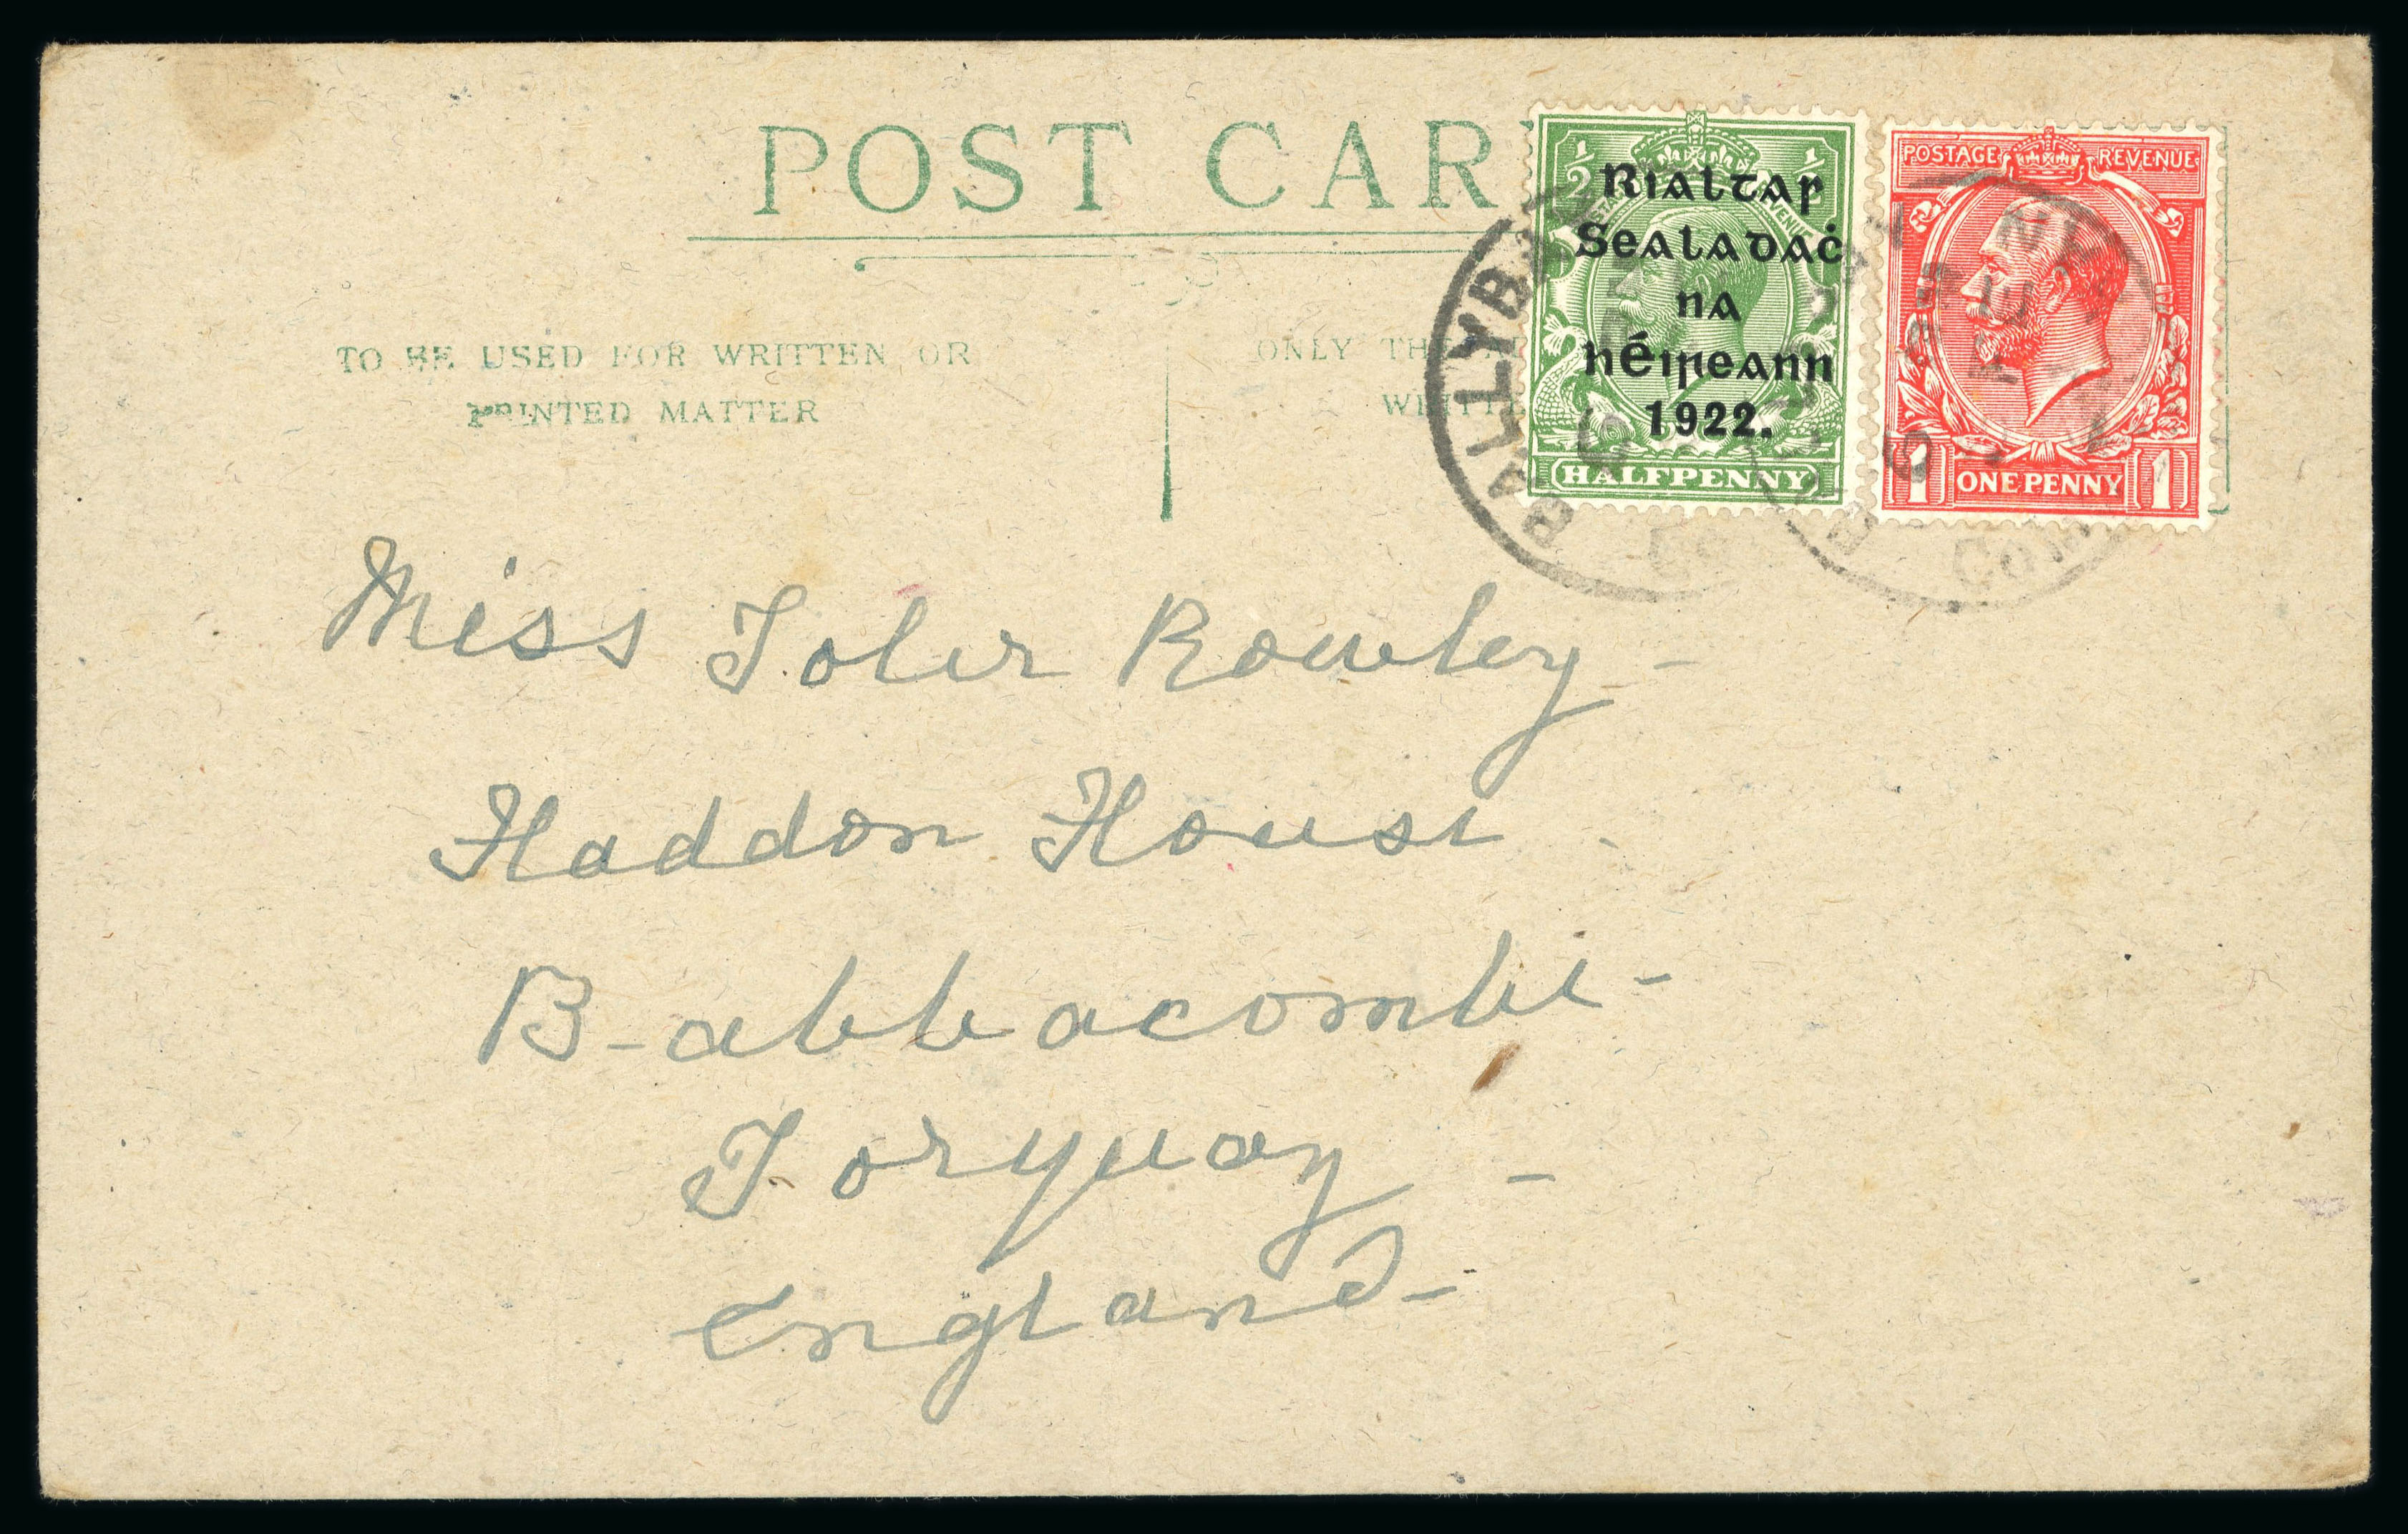 POST CAR
TO BE USED FOR WRITTEN OR
PRINTED MATTER
ONLY TH
Rialtas
Sealadaċ
na
hÉireann
1922.
½ ½
HALFPENNY
POSTAGE REVENUE
1 ONE PENNY 1
BALLYB
Co
Miss Toler Rowley -
Haddon House
Babbacombe -
Torquay -
England -